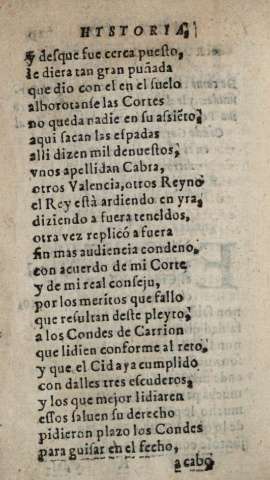 HYSTORIA,
y desque fue cerca puesto,
le diera tan gran puñada
que dio con el en el suelo
alborotanse las Cortes
no queda nadie en su assiẽto,
aqui sacan las espadas
alli dizen mil denuestos,
vnos apellidan Cabra,
otros Valencia, otros Reyno
el Rey està ardiendo en yra,
diziendo a fuera teneldos,
otra vez replicó a fuera
sin mas audiencia condeno,
con acuerdo de mi Corte
y de mi real conseju,
por los meritos que fallo
que resultan deste pleyto,
a los Condes de Carrion
que lidien conforme al reto,
y que el Cid aya cumplido
con dalles tres escuderos,
y los que mejor lidiaren
essos saluen su derecho
pidieron plazo los Condes
para guisar en el fecho,
a cabo